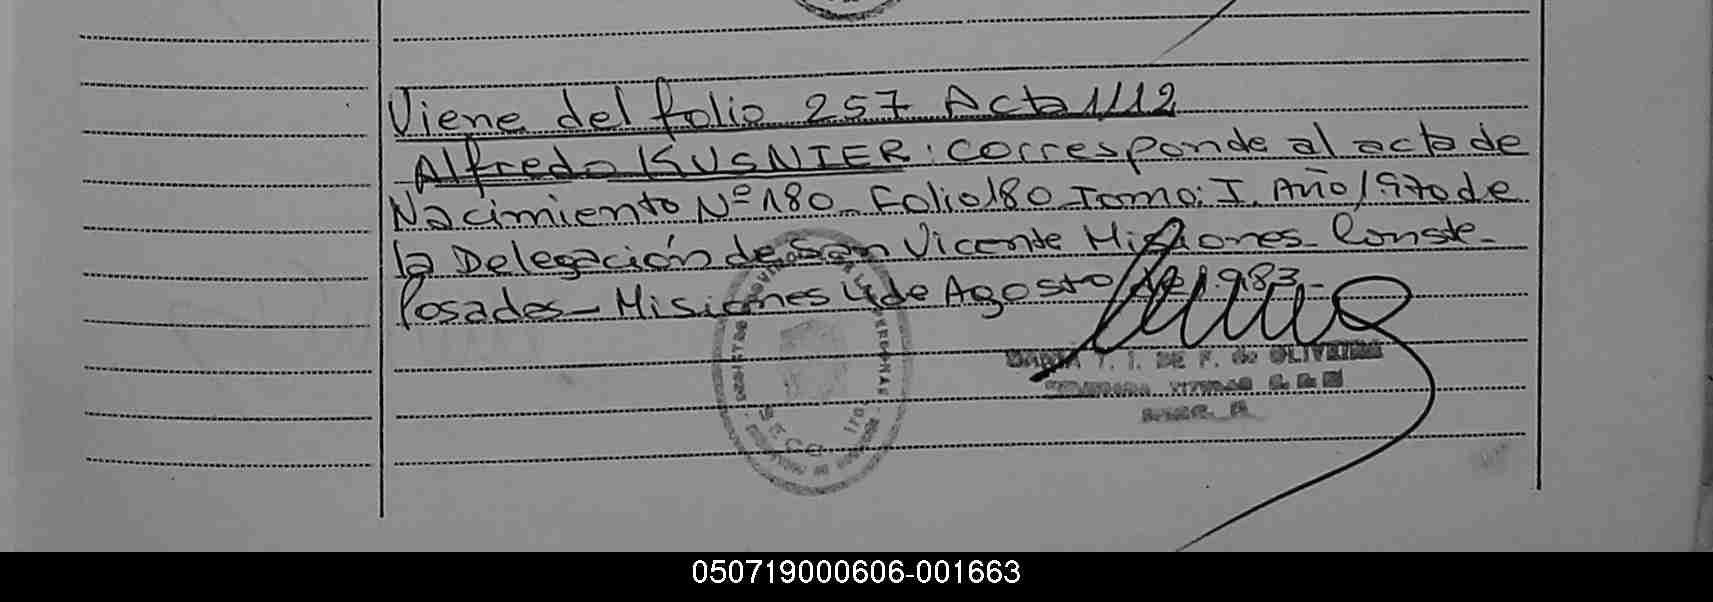 Viene del folio 257 Acta 1112
Alfredo KUSNIER: corresponde al acta de
Nacimiento Nº 180_ Folio 180_ Tomo: I. Año 1970 de
la Delegación de San Vicente Misiones_ Conste_
Posadas_ Misiones 4 de Agosto de 1.983_
DE P. de OLIVEIRA
TITULAR
050719000606-001663